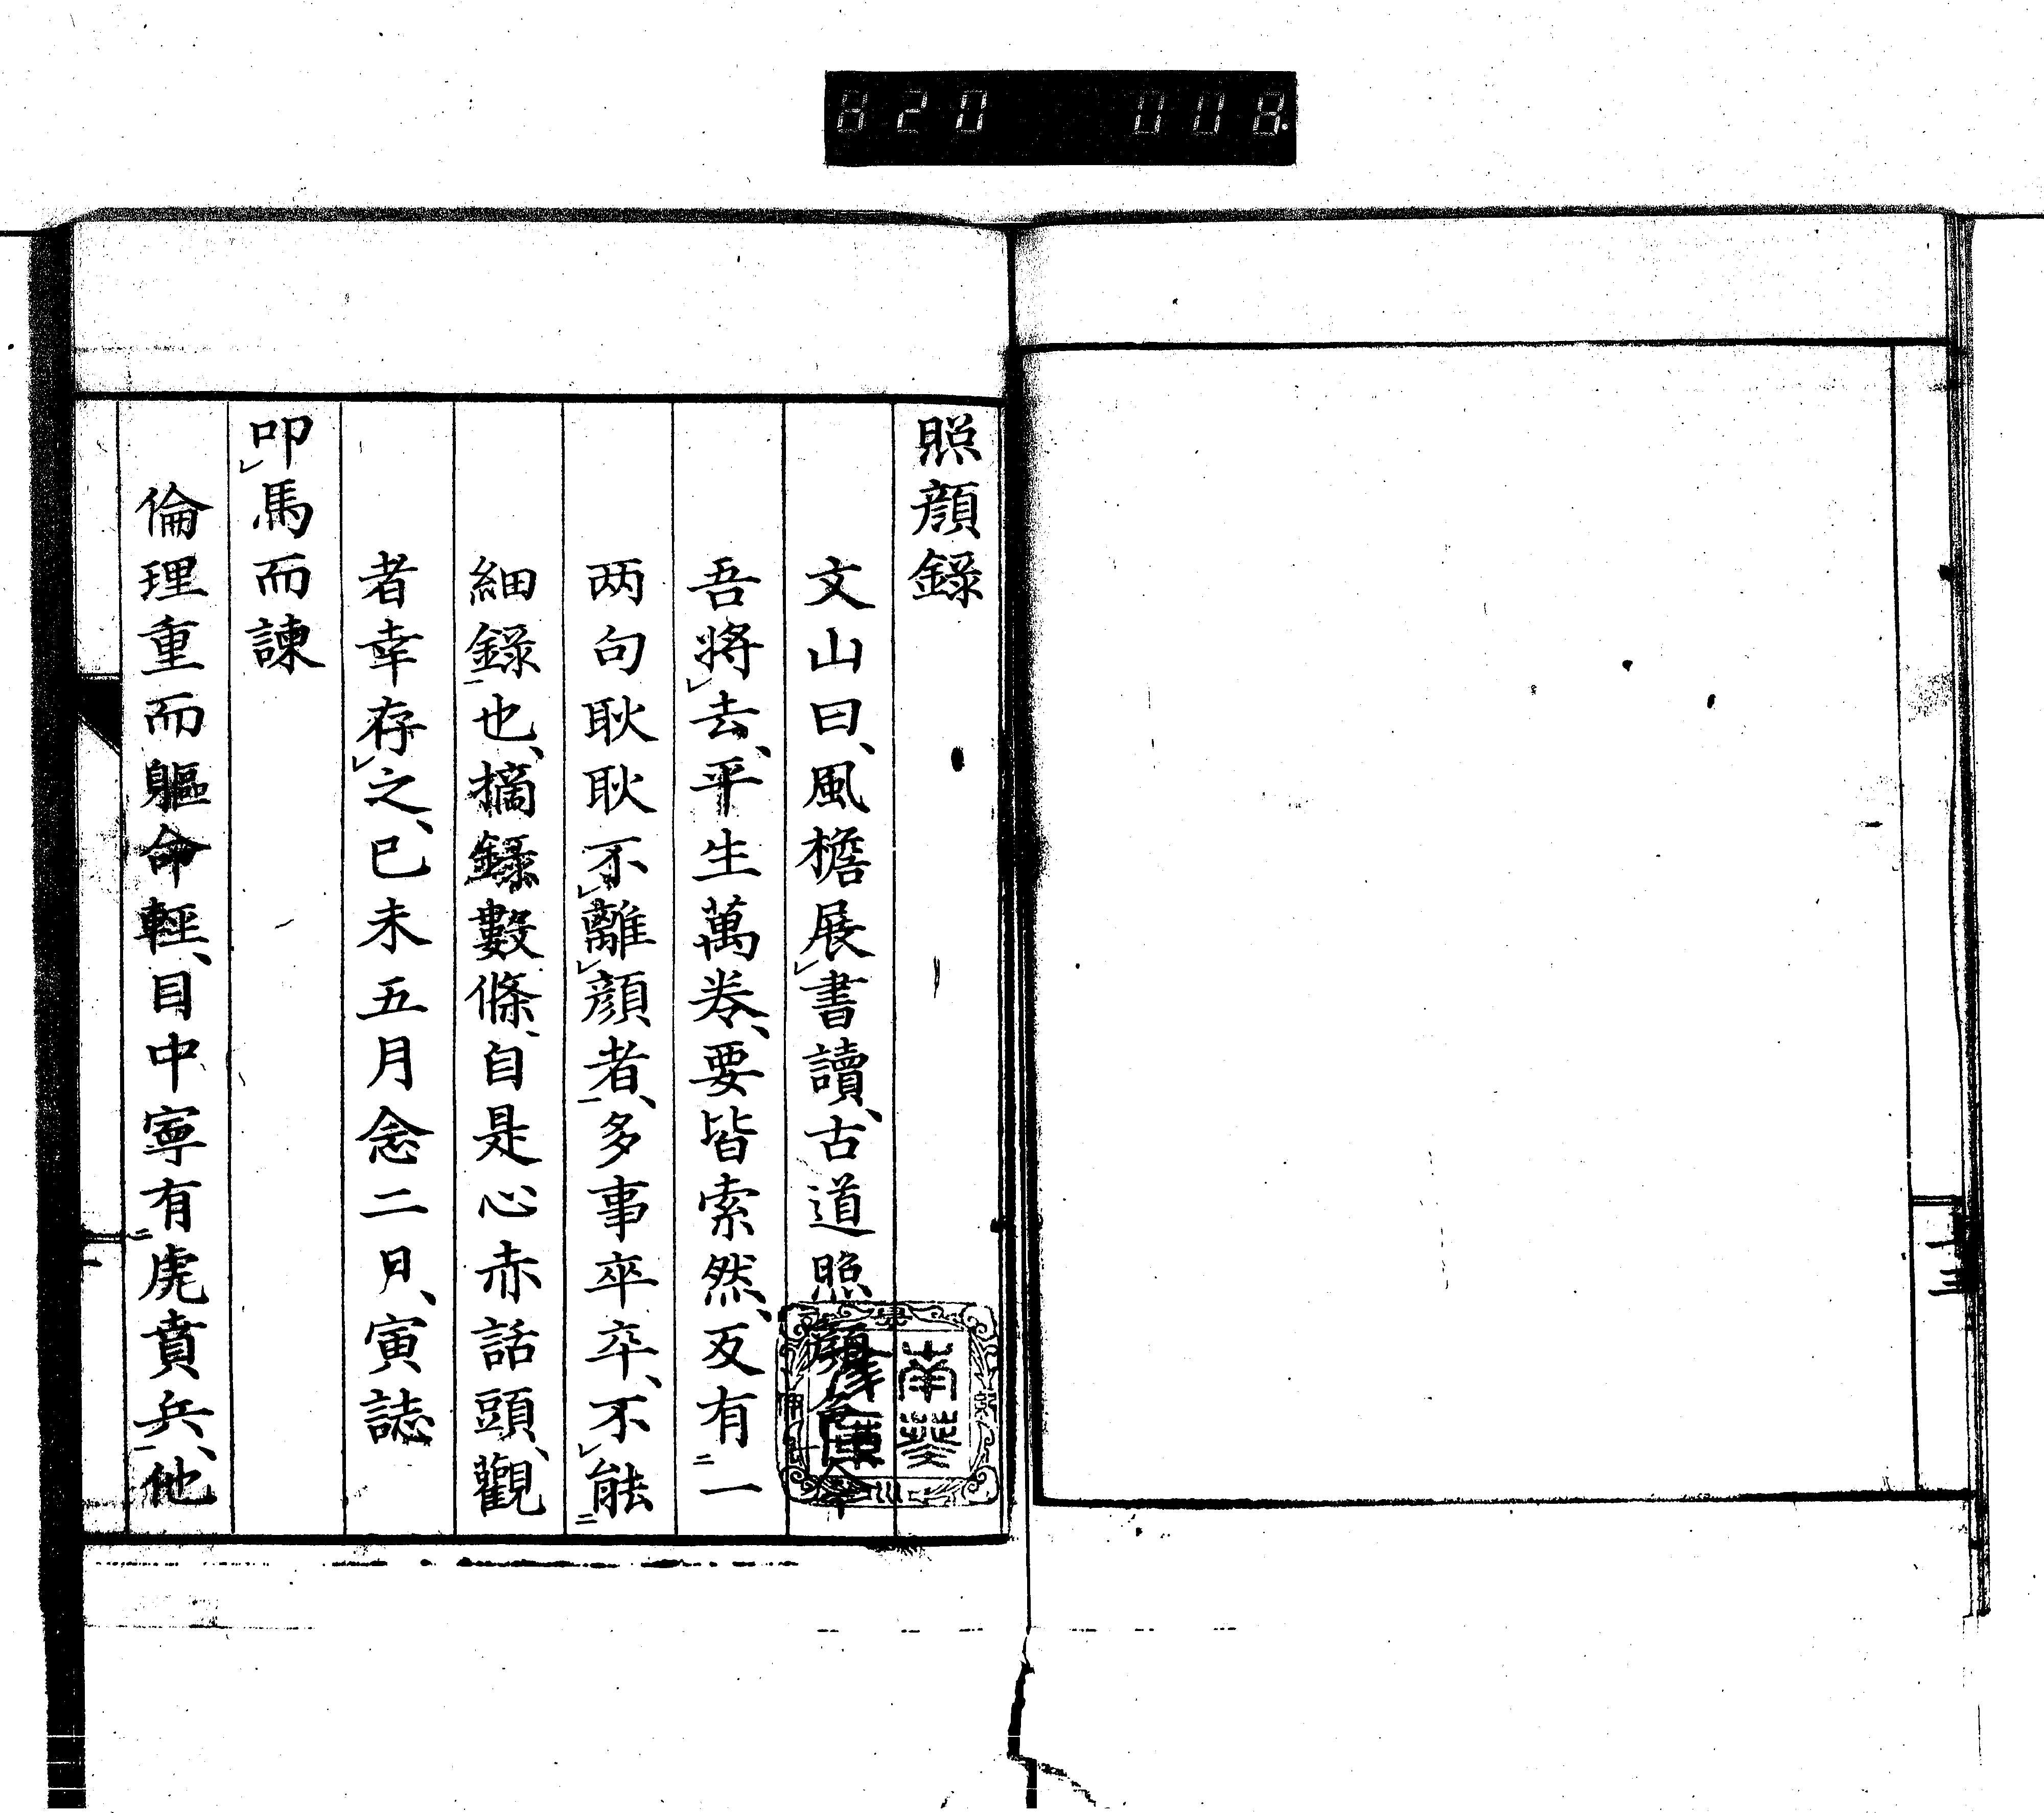 820 008
十三
照顏錄
文山曰、風檐展書讀、古道照顏色、今
吾將去、平生萬卷、要皆索然、反有一
两句耿耿不離顏者、多事卒卒、不能
細錄也、摘錄數條、自是心赤話頭、觀
者幸存之、己未五月念二日、寅誌
叩馬而諫
倫理重而軀命輕、目中寧有虎賁兵、他
南葵
文庫